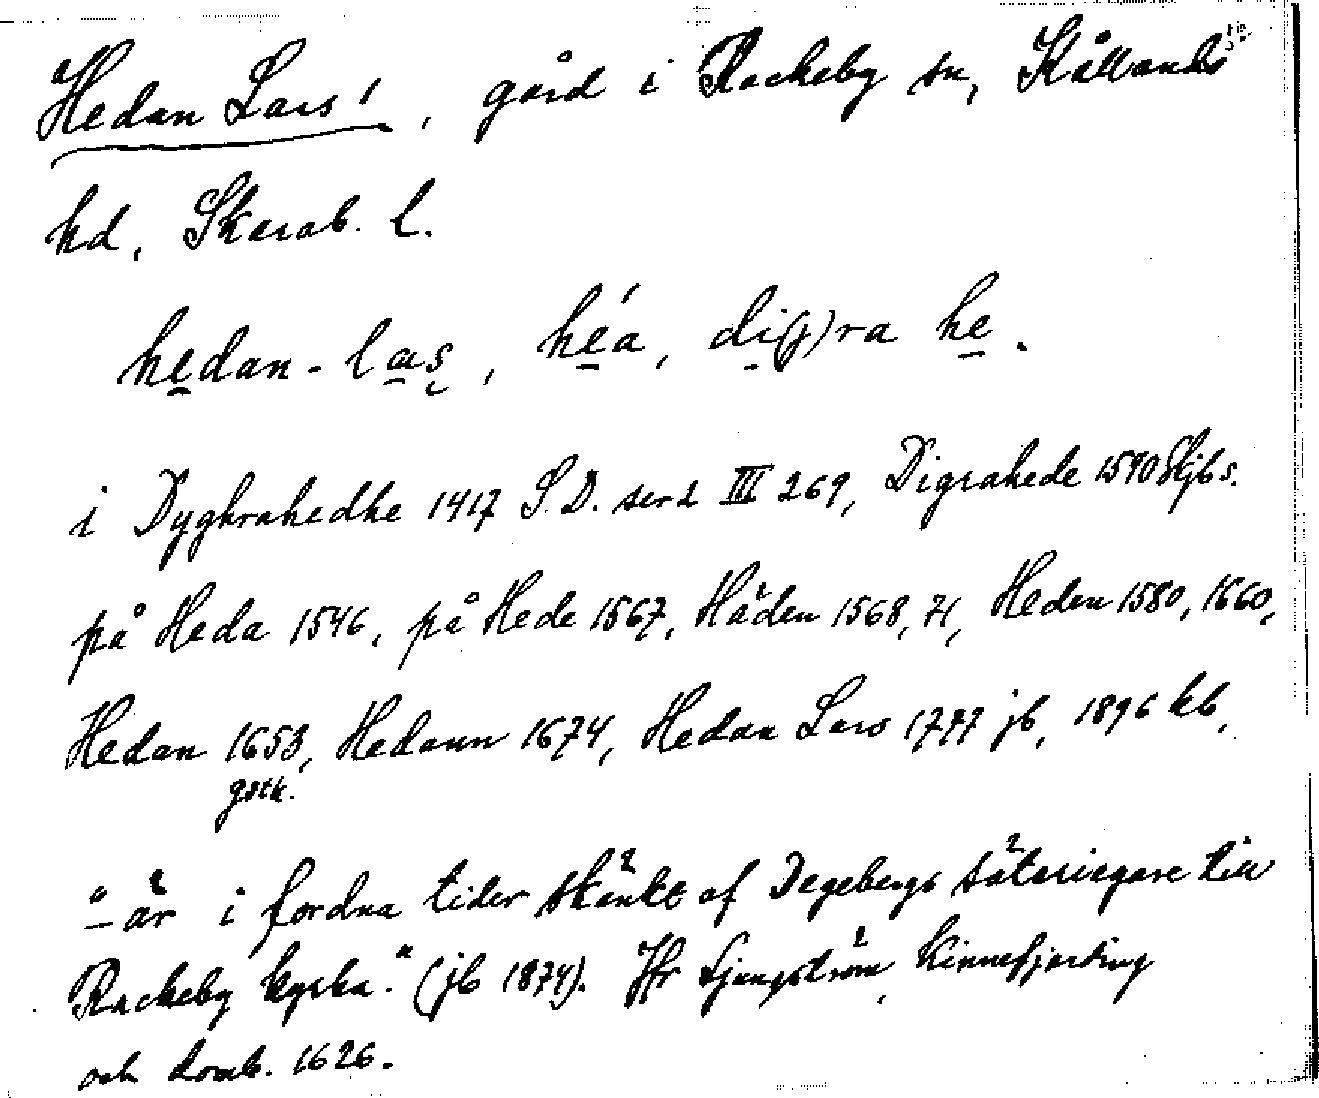 Hedan Lars!, gård i Rackeby sn, Kållands
hd, Skarab. l.
hedan-las, héa, di(g)ra he.
i Dyghrahedhe 1417 S.D. ser 2 III 269, Digrahede 1540 Skjbs.
på Heda 1546, på Hede 1567, Häden 1568, 71, Heden 1580, 1660,
Hedan 1653, Hedann 1674, Hedan Lars 1777 jb, 1896 kb,
gstk.
"– är i fordna tider skänkt af Degebergs säteriegare till
Rackeby kyrka." (jb 1874). Jfr Ljungström, Kinnefjerding
och domb. 1626.